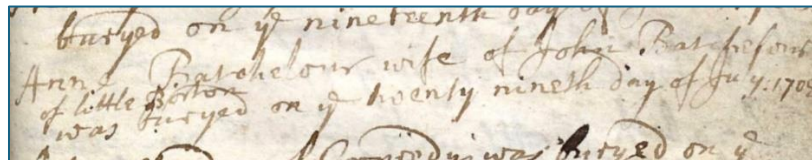 buryed on ye nineteenth day of
Anne Batchelour wife of John Batchelour
of little Borton
was buryed on ye twenty nineth day of July. 170
was buryed on ye